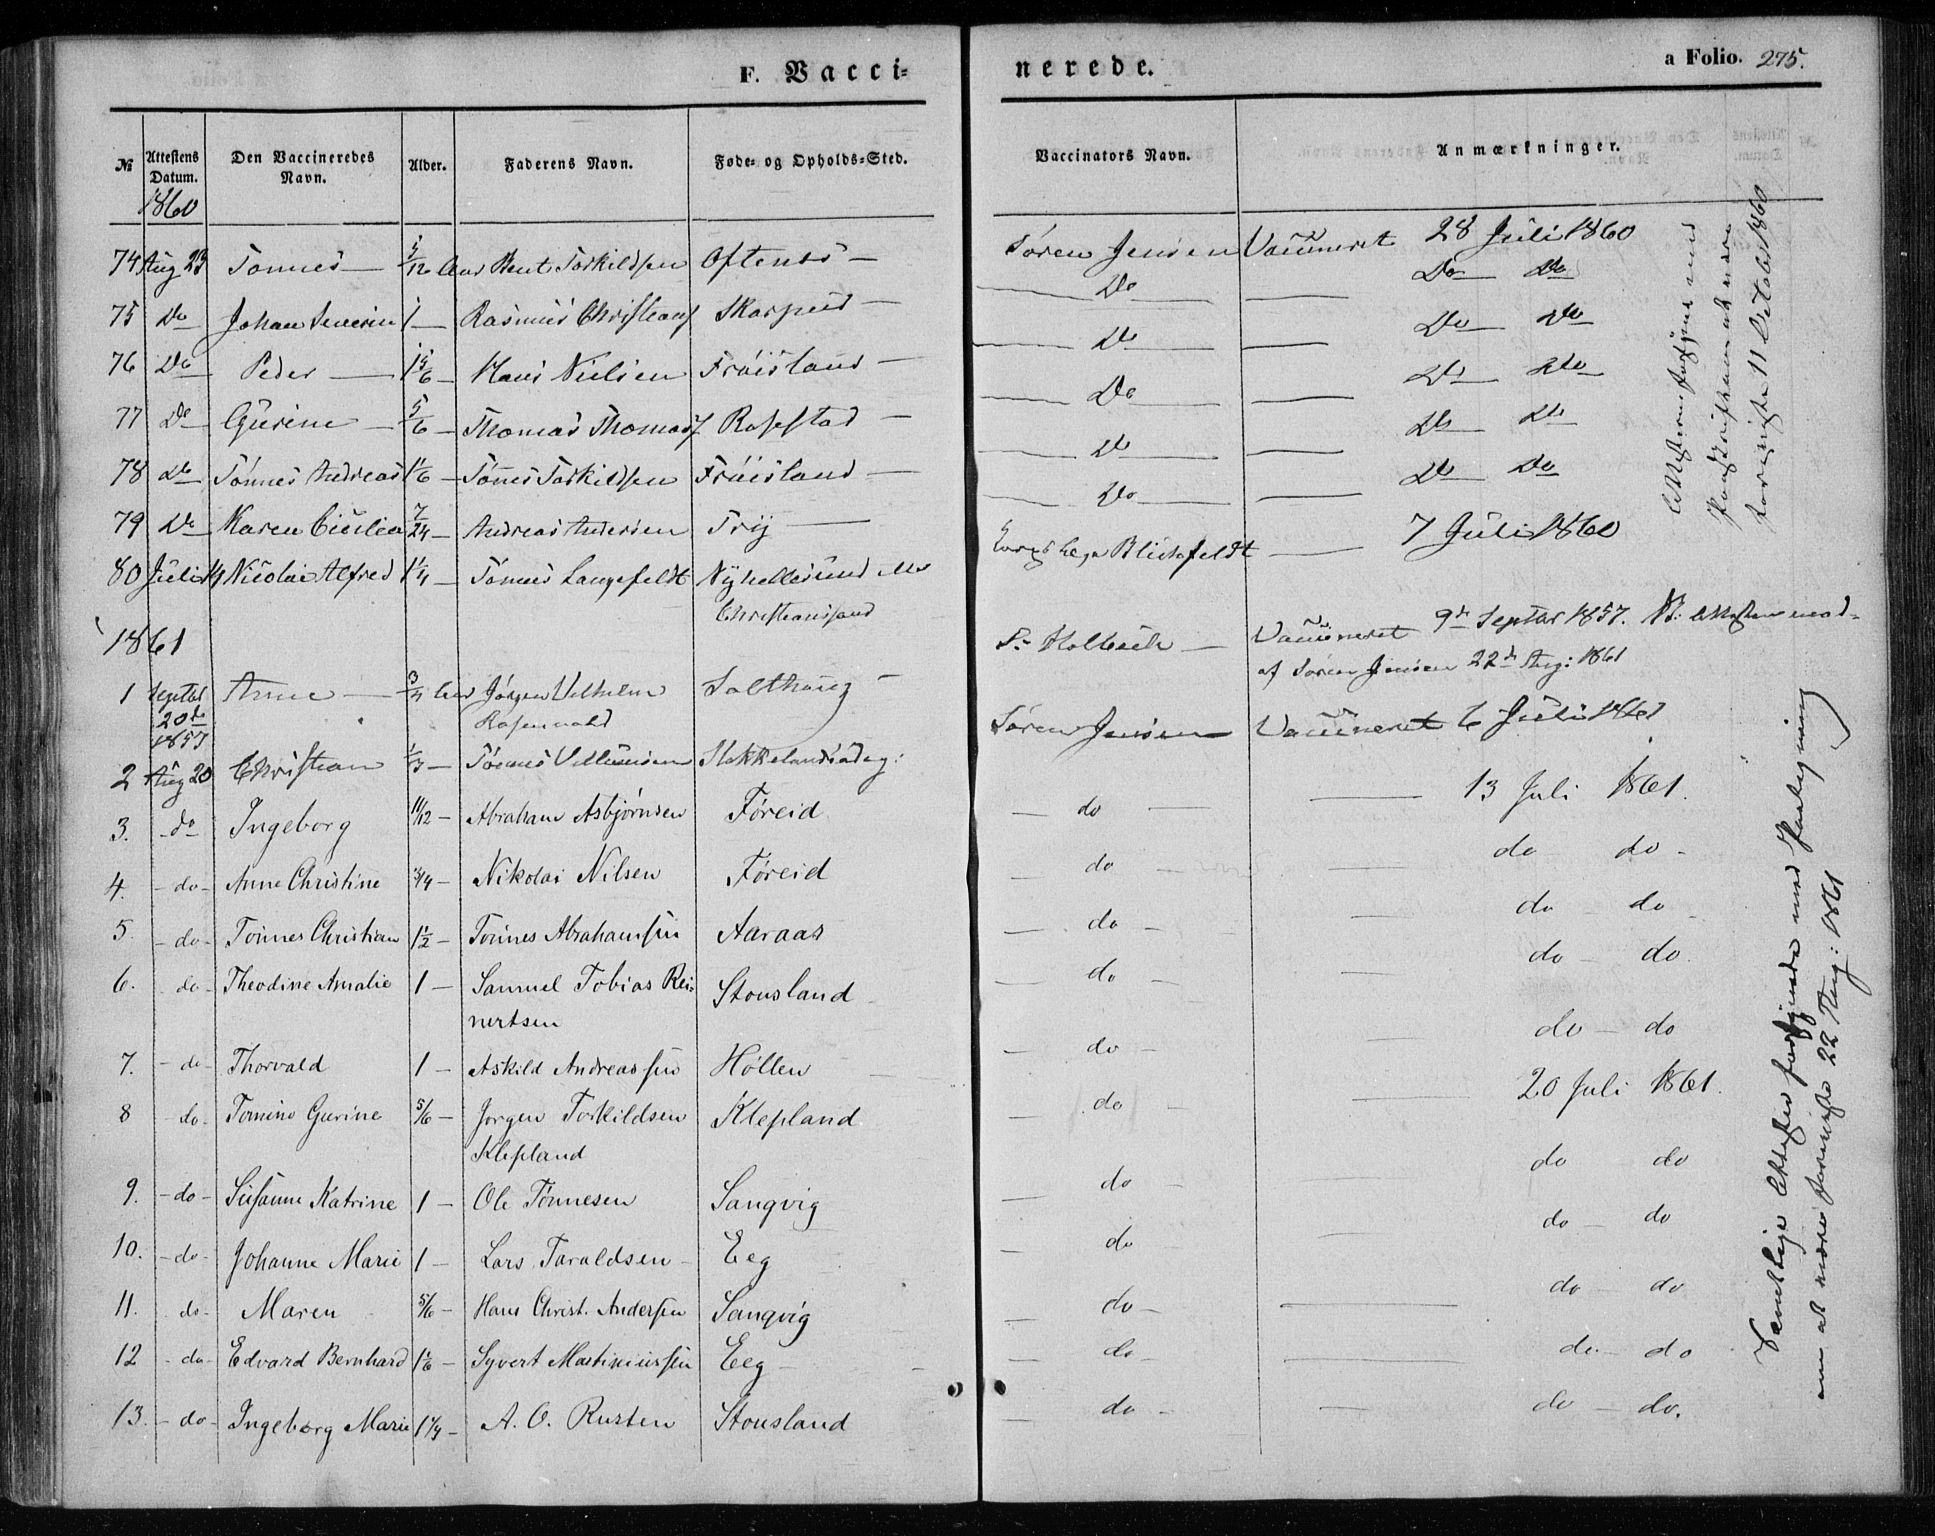 F. Vacci=
nerede.
a Folio. 275.
№ Attestens Datum. Den Vaccineredes Navn. Alder. Faderens Navn. Føde= og Opholds=Sted. Vaccinators Navn. Anmærkninger.
1860
74 Aug 23 Tønnes — 5/12 Aar Bent Torkildsen Oftenes — Søren Jensen Vaccineret 28 Juli 1860
75 Do Johan Severin 1 — Rasmus Christens Skarpeid — Do — Do Do
76 Do Peder — 1 5/6 — Hans Nielsen Frøisland — Do — Do Do
77 Do Gurine — 5/6 — Thomas Thomass Rosseland — Do — Do Do
78 Do Tønnes Andreas 1 1/6 — Tønnes Torkildsen Frøisland — Do — Do Do
79 Do Karen Cicilia 7/24 — Andreas Andersen Try — Do — Do Do
80 Juli 14 Nicolai Alfred 1 1/4 — Tønnes Langefeldt Nyhellesund Christianssand Blichfeldt — 7 Juli 1860
Christianssand
1861
1 Septbr Anne — 3/4 Aar Jørgen Vilhelm Salthaug — S. Holbech — Vaccineret 9de Septbr 1857. NB:
20de Rosenvold af Søren Jensen 22de Aug: 1861
1857
2 Aug 20 Christian 1/3 — Tønnes Villumsen Stokkelandsødeg: Søren Jensen Vaccineret 6 Juli 1861
3. do Ingeborg 11/12 — Abraham Asbjørnsen Føreid — do — 13 Juli 1861.
4. - do - Anne Christine 3/4 — Nikolai Nilsen Føreid do — do do -
5. - do - Tønnes Christian 1 1/2 — Tønnes Abrahamsen Aaraas — do — do do -
6. - do - Theodine Amalie 1 — Samuel Tobias Rei- Stousland — do — do do.
nertsen
7. - do - Thorvald 1 — Askild Andreassen Høllen — do — do — do
8 - do - Tomine Gurine 5/6 — Jørgen Torkildsen Klepland — do — 20 Juli 1861.
Klepland
9. - do - Susanne Katrine 1 — Ole Tønnesen Sangvig — do — do do
10. - do - Johanne Marie 1 — Lars Taraldsen Eeg — do — do — do
11. do - Maren 5/6 — Hans Christ. Andersen Sangvig do — do do
12 - do - Edvard Bernhard 1 1/6 — Syvert Martiniussen Eeg — do — do — do
13. - do - Ingeborg Marie 1 1/4 — A. O. Rusten Stousland — do — do — do.
Attesterne forsynes med
Paaskriften at være
foreviste 11 October 1860
Samtlige Attester forsynede med Paategning
om at være foreviste 22 Aug: 1861